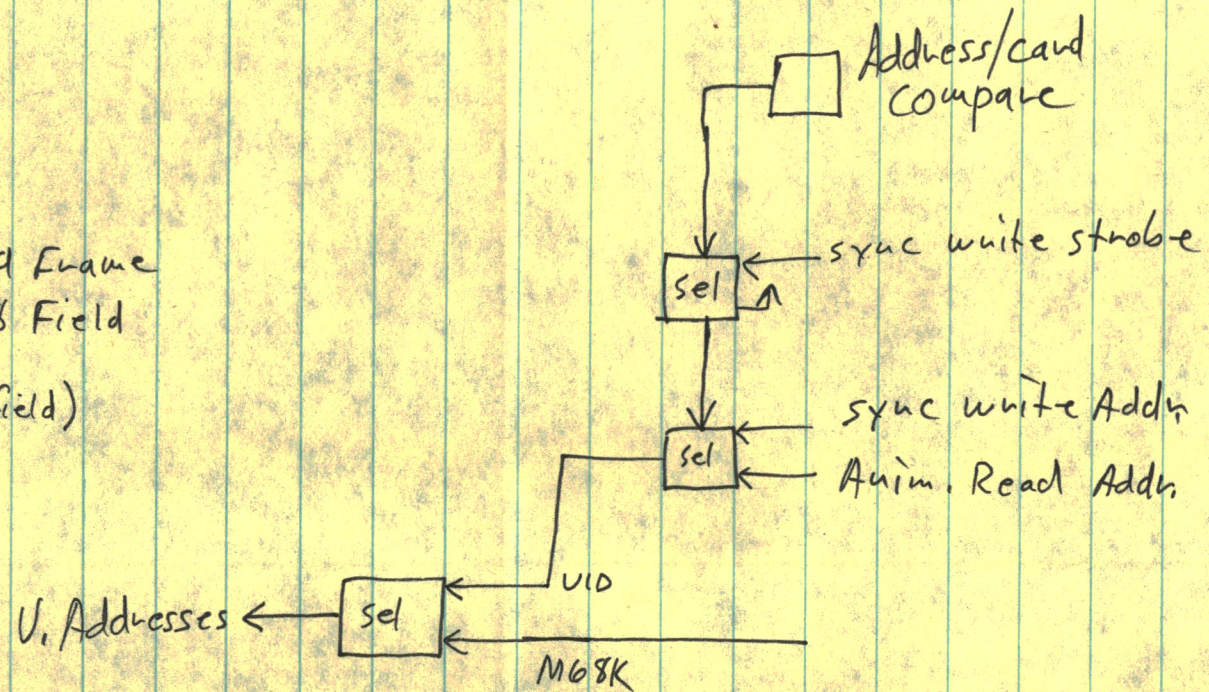 Address/card
compare
d Frame
& Field
field)
sync write strobe
sel
sync write Addr.
sel
Anim. Read Addr.
VID
V. Addresses
sel
M68K